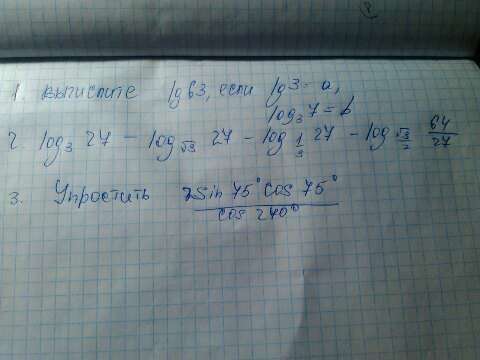 1. вычислите lg63, если lg3 = a,
log₃7 = b
2 log₃ 27 − log_√3 27 − log_1/3 27 − log_√3/2 64/27
3. Упростить 2Sin 75° cos 75° / cos 240°